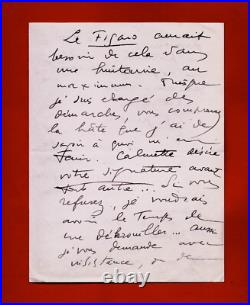 Le Figaro aurait
besoin de cela dans
une huitaine, au
maximum. Puisque
je suis chargé des
démarches, vous comprenez
la hâte que j'ai de
savoir à quoi m'en
tenir. Calmette désire
votre signature avant
tout autre... Si vous
refusez, je voudrais
avoir le temps de
me débrouiller... aussi
je vous demande avec
insistance, de